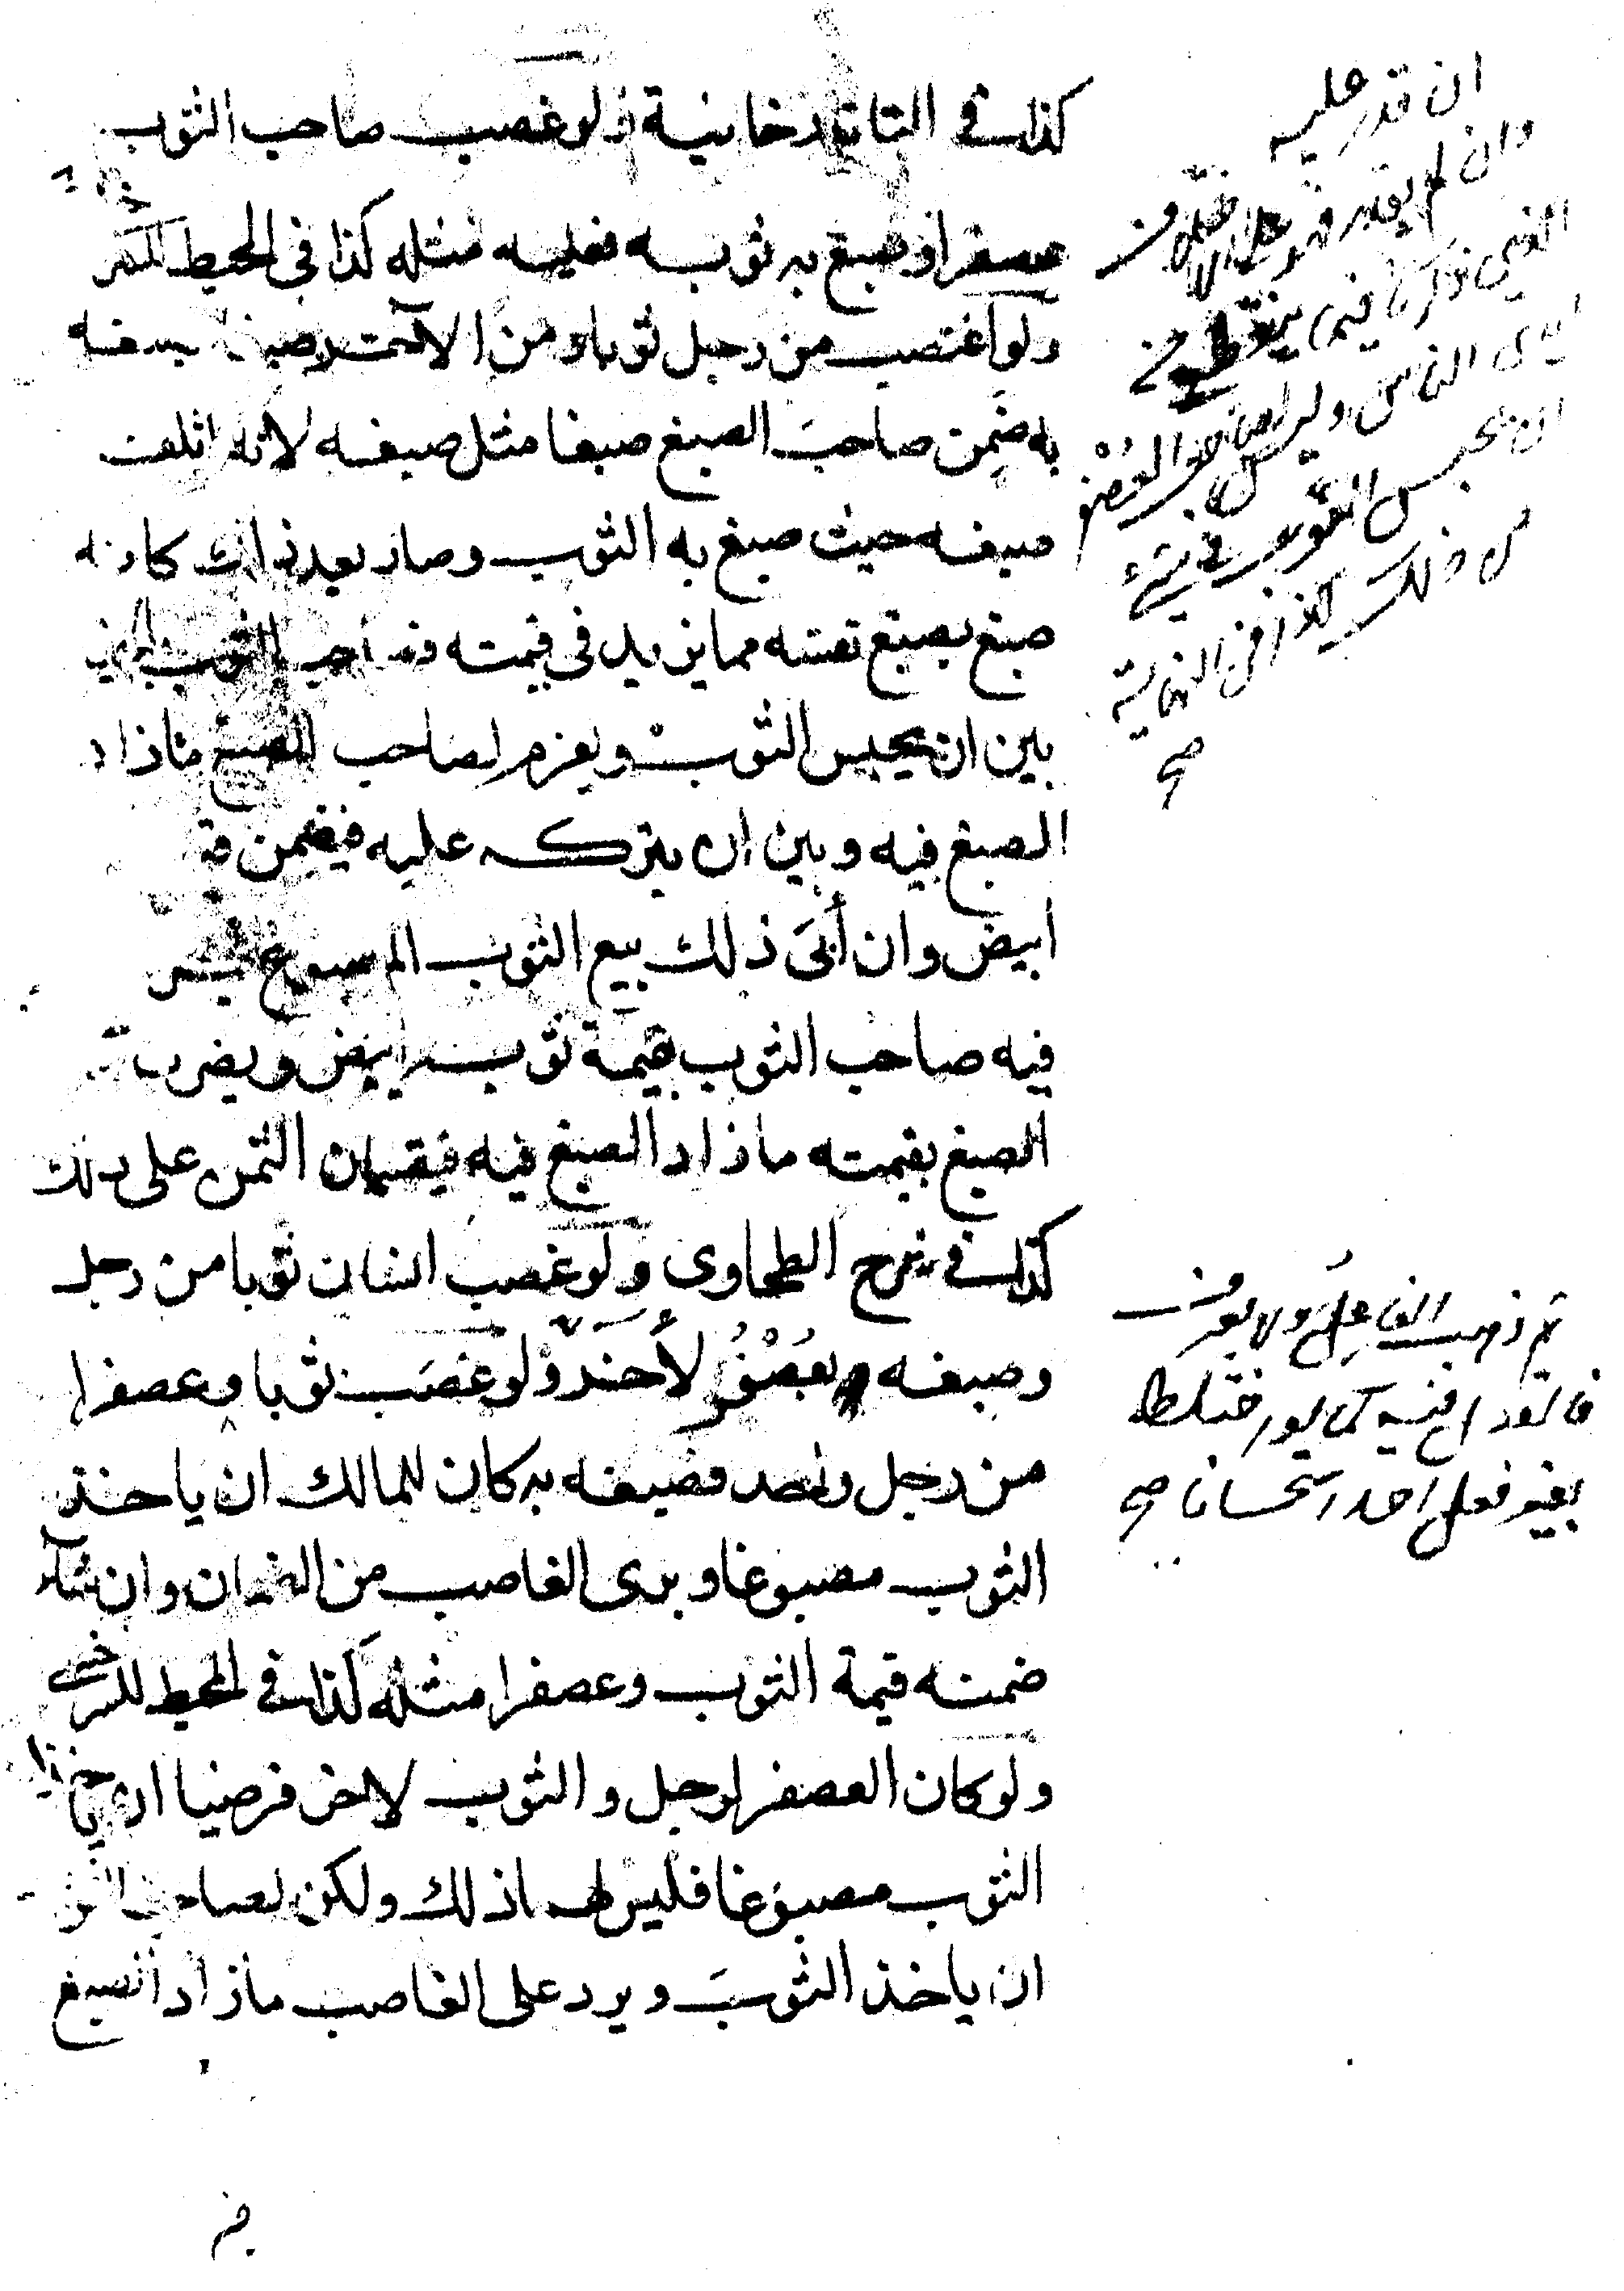 كذا في التاتارخانية ولو غصب صاحب الثوب
عصفرا وصبغ به ثوبه فعليه مثله كذا في المحيط
ولو اغتصب من رجل ثوبا ومن الآخر صبغا
به ضمن صاحب الصبغ صبغا مثل صبغه لانه اتلف
صبغه حيث صبغ به الثوب وصار بعد ذلك كانه
صبغ بصبغ نفسه مما يزيد في قيمته الثوب
بين ان يحبس الثوب ويغرم لصاحب الصبغ ما زاد
الصبغ فيه وبين ان يتركه عليه فيضمن
ابيض وان أبى ذلك بيع الثوب المصبوغ
فيه صاحب الثوب بقيمة ثوب ابيض ويضرب
الصبغ بقيمته ما زاد الصبغ فيه فيقسمان الثمن على ذلك
كذا في شرح الطحاوى ولو غصب انسان ثوبا من رجل
وصبغه بعصفر لأحد ولو غصب ثوبا وعصفرا
من رجل واحد فصبغه به كان للمالك ان ياخذ
الثوب مصبوغا وبرى الغاصب من الضمان وان شاء
ضمنه قيمة الثوب وعصفرا مثله كذا في المحيط للسرخسى
ولو كان العصفر لرجل والثوب لاخر فرضيا ان ياخذا
الثوب مصبوغا فليس لهما ذلك ولكن لصاحب الثوب
ان ياخذ الثوب ويرد على الغاصب ما زاد الصبغ
ان قدر عليه
وان لم يقدر فهو على الاختلاف
الذي ذكرنا فيما ينقطع من
ايدى الناس وليس لصاحب العصفر
ان يحبس الثوب في شئ
من ذلك كذا في النهاية
صح
ثم ذهب الفاعل ولا يعرف
فالقول فيه كما لو اختلط
بغير فعل احد استحسانا صح